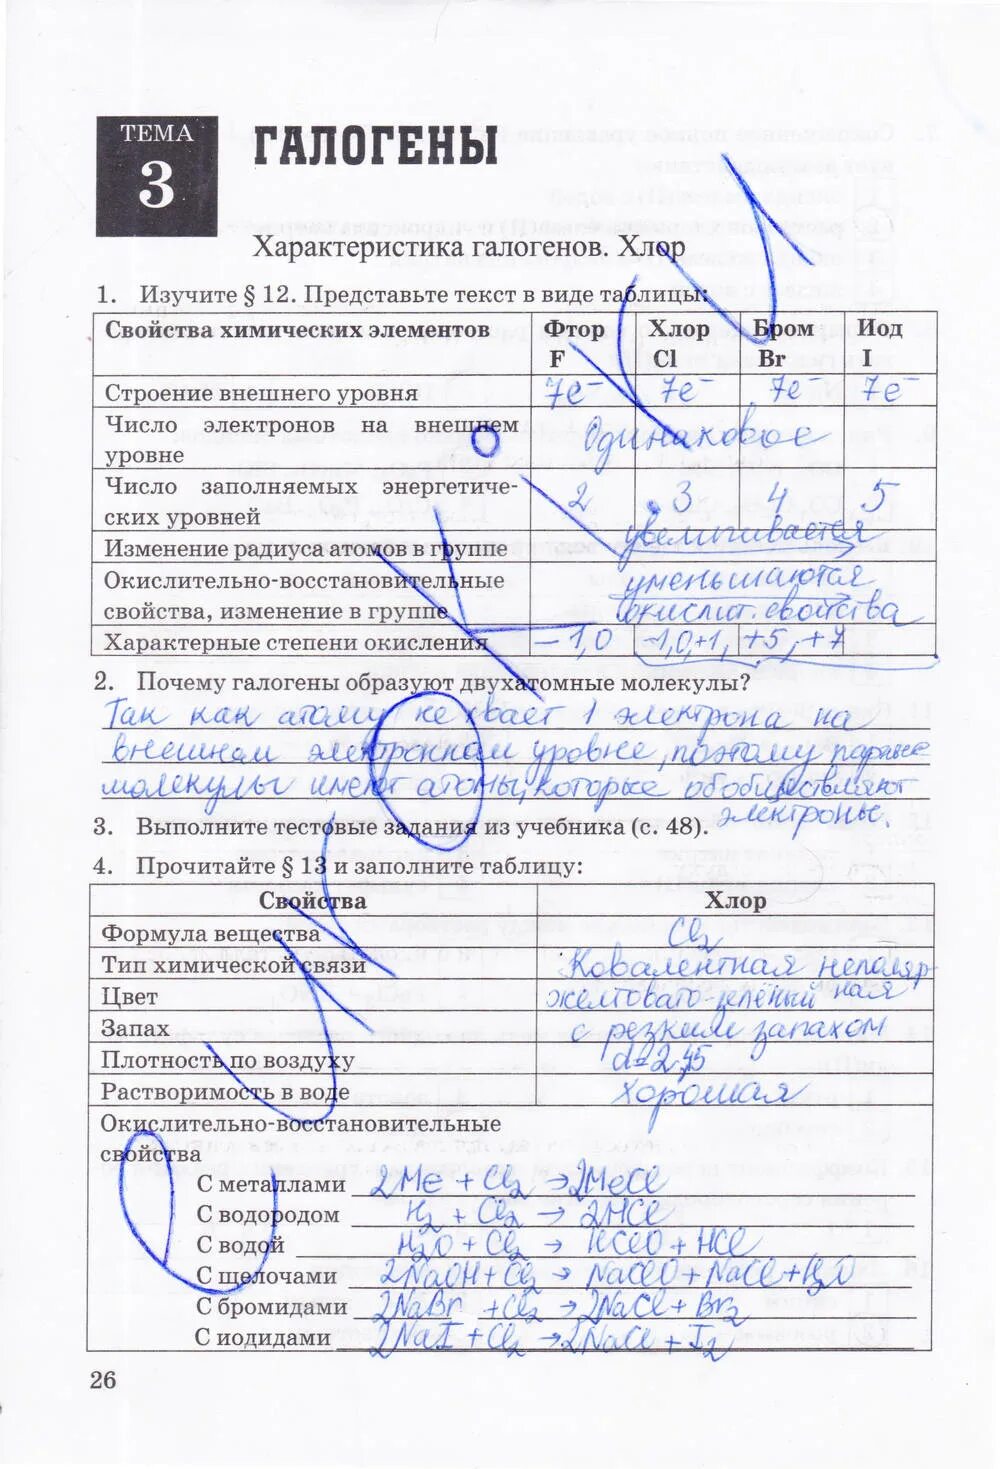 ТЕМА
3
ГАЛОГЕНЫ
Характеристика галогенов. Хлор
1. Изучите § 12. Представьте текст в виде таблицы:
Свойства химических элементов Фтор F Хлор Cl Бром Br Иод I
Строение внешнего уровня 7e⁻ 7e⁻ 7e⁻ 7e⁻
Число электронов на внешнем
уровне Одинаковое
Число заполняемых энергетиче-
ских уровней 2 3 4 5
Изменение радиуса атомов в группе увеличивается
Окислительно-восстановительные уменьшаются
свойства, изменение в группе окислит. свойства
Характерные степени окисления −1,0 −1,0,+1, +5, +7
2. Почему галогены образуют двухатомные молекулы?
Так как атому не хвает 1 электрона на
внешнем электронном уровне, поэтому
молекулы имеют атомы, которые обобществляют
электроны.
3. Выполните тестовые задания из учебника (с. 48).
4. Прочитайте § 13 и заполните таблицу:
Свойства Хлор
Формула вещества Cl₂
Тип химической связи Ковалентная неполяр-
ная
Цвет желтовато-зелёный
Запах с резким запахом
Плотность по воздуху d=2,45
Растворимость в воде хорошая
Окислительно-восстановительные
свойства
С металлами 2Me + Cl₂ → 2MeCl
С водородом H₂ + Cl₂ → 2HCl
С водой H₂O + Cl₂ → HClO + HCl
С щелочами 2NaOH + Cl₂ → NaClO + NaCl + H₂O
С бромидами 2NaBr + Cl₂ → 2NaCl + Br₂
С иодидами 2NaI + Cl₂ → 2NaCl + I₂
26